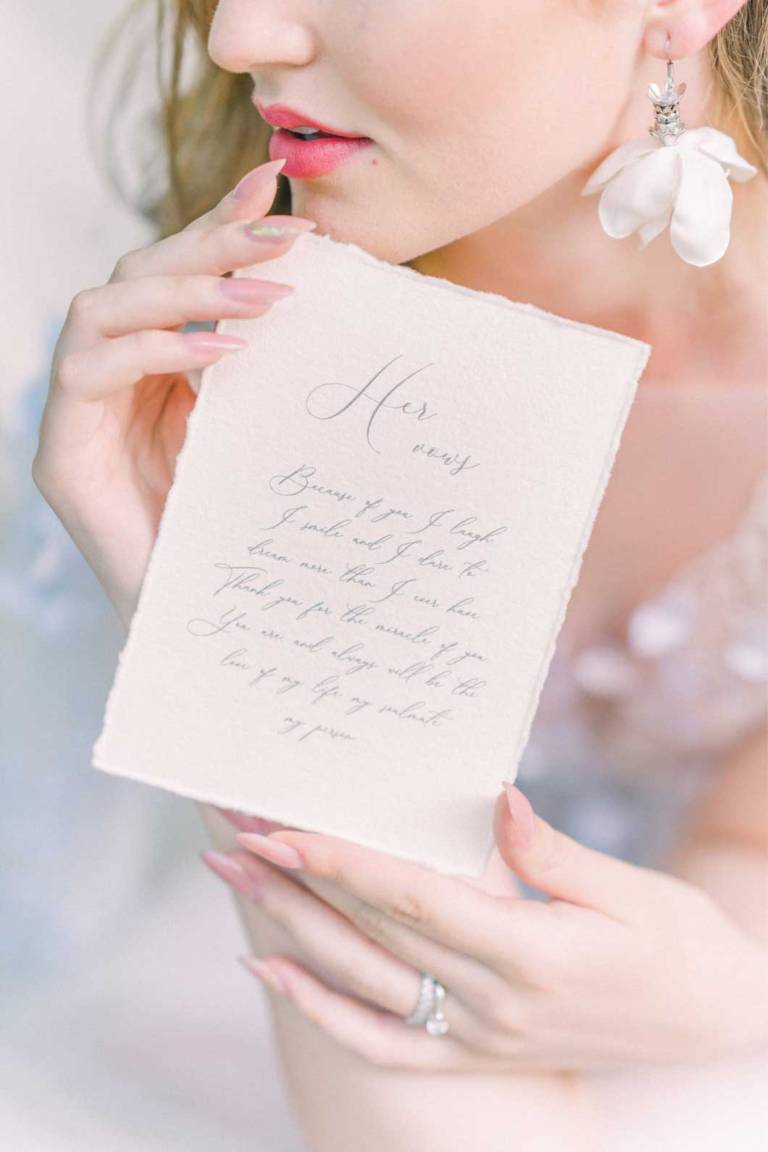 Her
vows
Because of you I laugh,
I smile and I dare to
dream more than I ever have.
Thank you for the miracle of you
You are, and always will be the
love of my life, my soulmate
my person